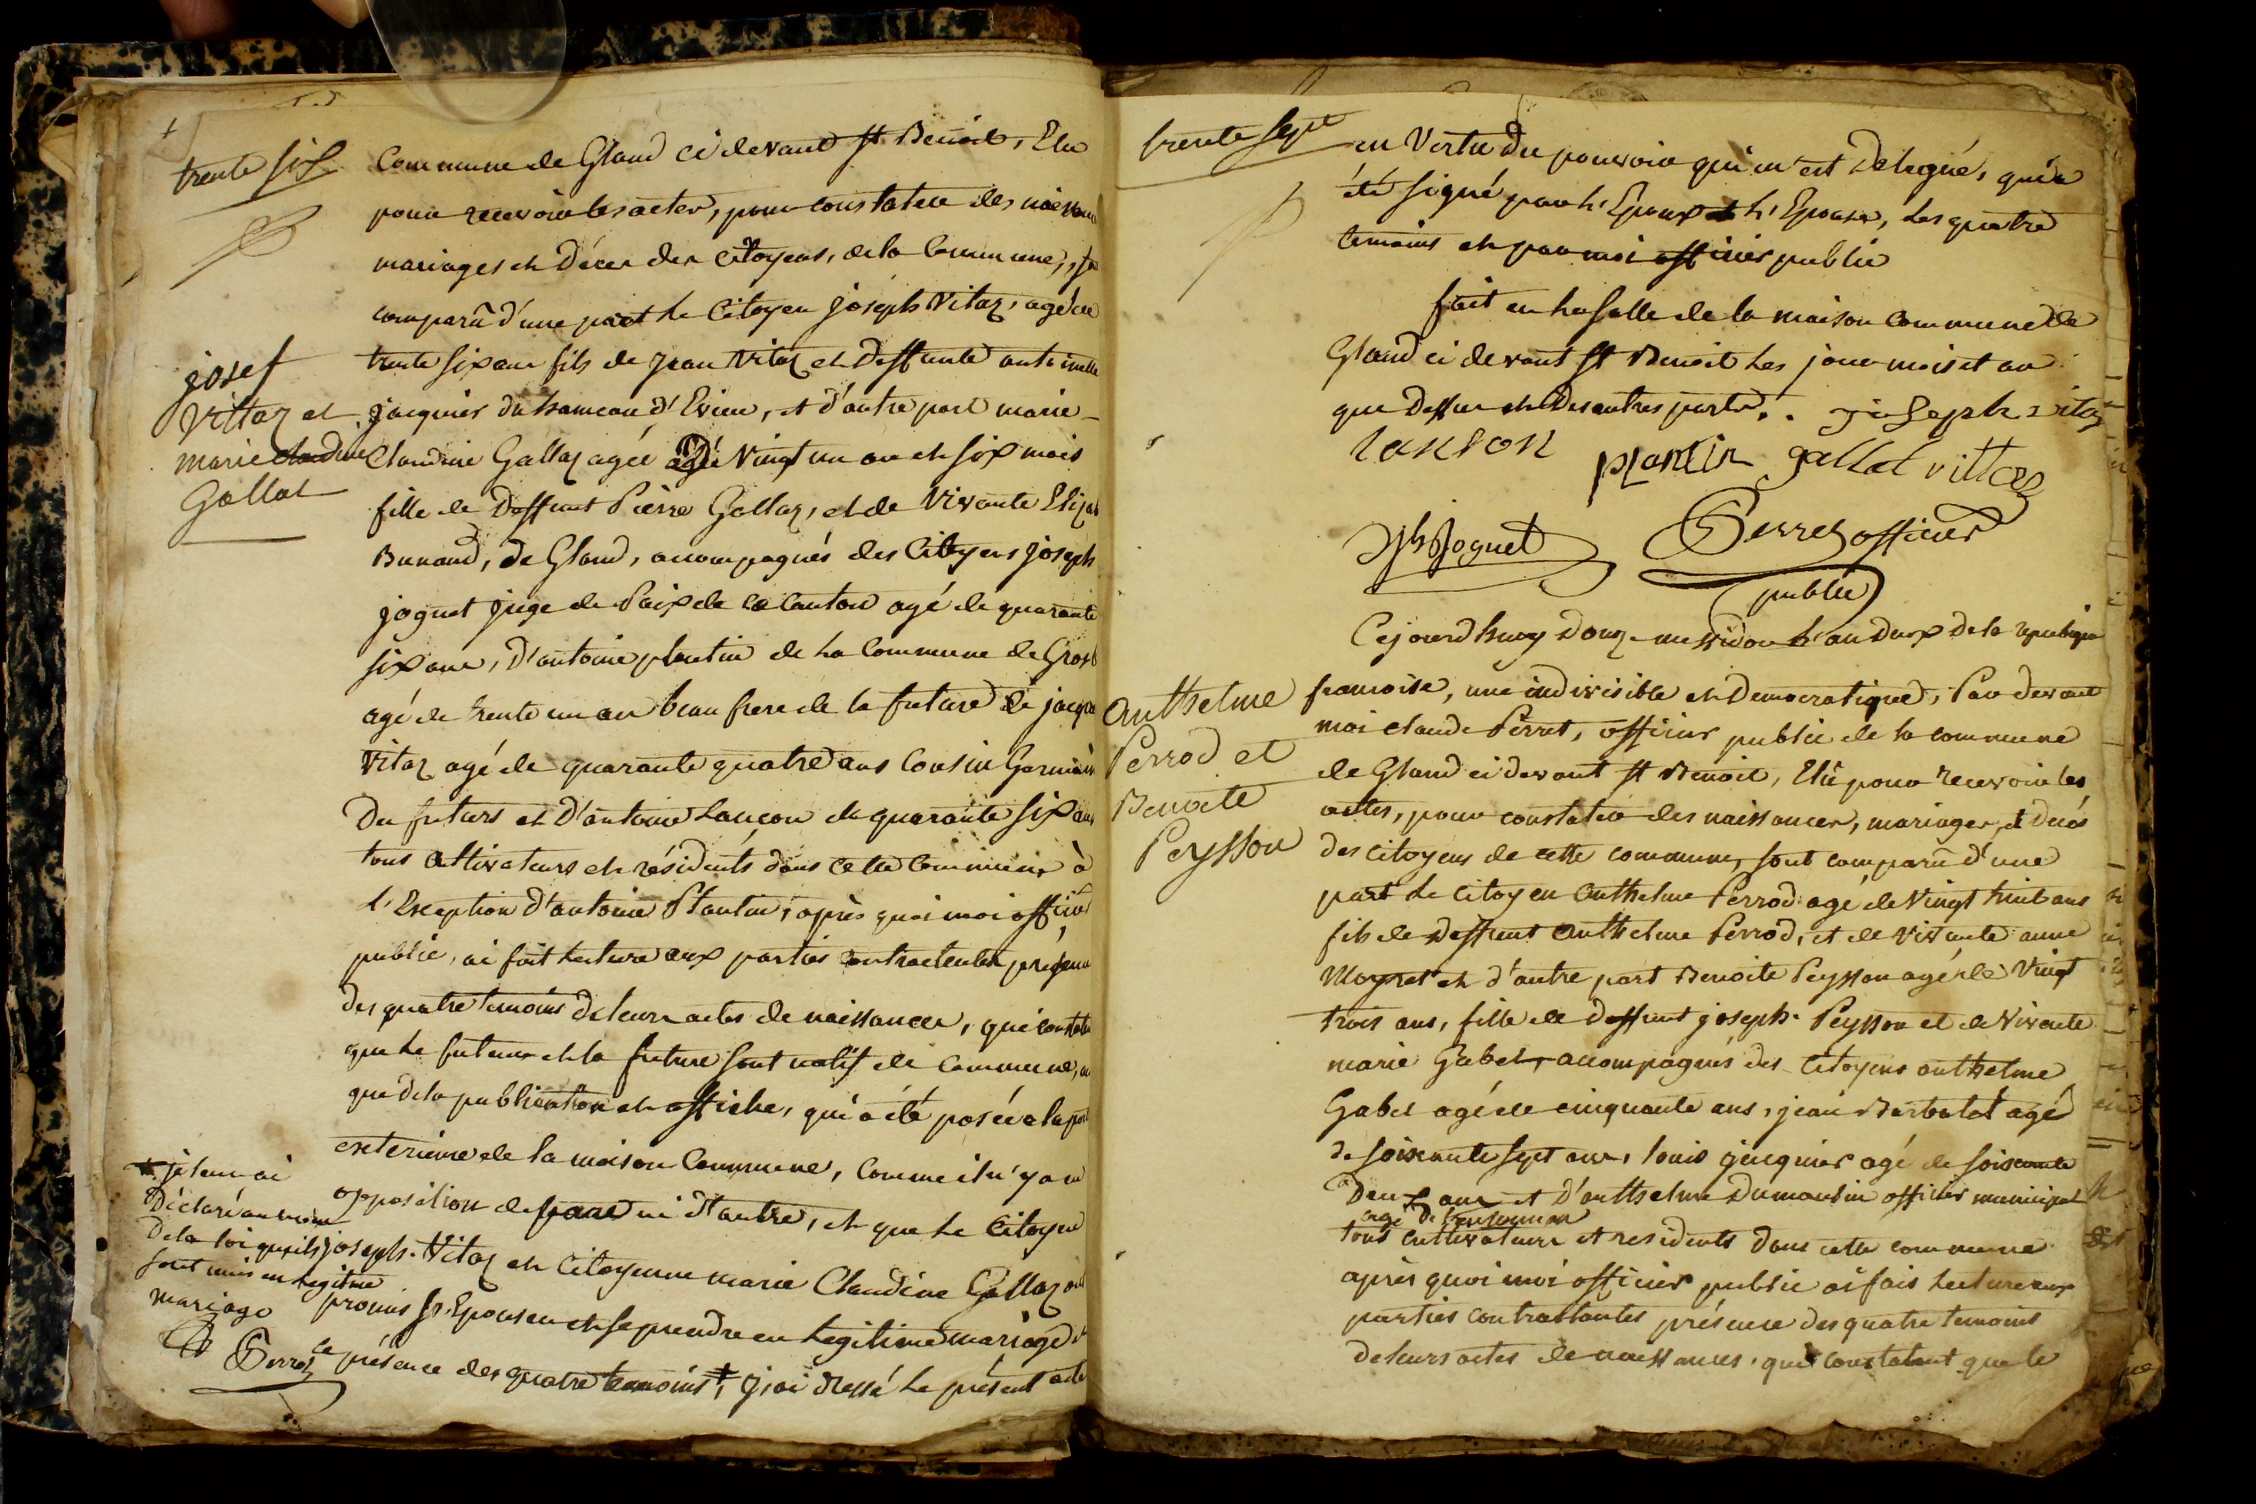 trente six
Commune de Gland ci devant st Benoit, Elu
pour recevoir les actes, pour constater des naissan
mariages et décès des citoyens, de la Commune, so
comparû d'une part le Citoyen joseph Vitaz, agé de
trente six ans fils de jean Vitaz et deffunte antoinette
josef
Vittaz et
marie claudine
Gallat
jacquier du hameau d'Evieu, et d'autre part marie
Claudine Gallaz agée agée Vingt un an et six mois
fille de deffunt Pierre Gallaz, et de Vivante Elizab
Bunand, de Gland, acompagnés des Citoyens joseph
joguet juge de Paix de ce Canton agé de quarante
six ans, d'antoine plantin de la Commune de Grosl
agé de trente un an beau frere de la future de jacque
Vitaz agé de quarante quatre ans Cousin Germain
du futurs et d'antoine Lançon de quarante six ans
tous cultivateurs et résidents dans cette Commune à
l'Exception d'antoine Plantin, après quoi moi officier
public, ai fait lecture aux parties contractentes présence
des quatre temoins de leurs actes de naissances, qui constate
que le futeur et la future sont natif de Commune,
que de la publication et affiche, qui a été posée a la por
exterieure de la maison Commune, Comme il n'y a eu
opposition de part ni d'autre, et que le Citoyen
joseph Vitaz et Citoyenne marie Claudine Gallaz ont
promis s'Epouser et se prendre en legitime mariage et
ce présence des quatre temoins ‡, j'ai dressé le présent acte
‡ je leur ai
Déclaré au nom
de la loi quils
sont unis en legitime
mariage
Perret
trente sept
en Vertu du pouvoir qui m'est delegué, qui a
été signé par l'Epoux et l'Epouse, les quatre
temoins et par moi officier public
fait en la salle de la maison Commune de
Gland ci devant st Benoit les jour mois et an
que dessus et des autres parts.. joseph vitaz
lanson plantin gallat vittaz
Jph Joguet Perret officier
public
Cejourdhuy douze messidor l'an deux de la republique
anthelme
Perrod et
Benoite
Peysson
francoise, une indivisible et Democratique, Par devant
moi claude Perret, officier public de la commune
de Gland ci devant st Benoit, Elû pour recevoir les
actes, pour constater des naissances, mariages, et decés
des citoyens de cette commune, sont comparû d'une
part le Citoyen Anthelme Perrod agé de Vingt huit ans
fils de deffunt Anthelme Perrod, et de Vivante anne
Moyret et d'autre part Benoite Peysson agée de Vingt
trois ans, fille de deffunt joseph Peysson et de Vivante
marie Gabet, acompagnés des Citoyens anthelme
Gabet agé de cinquante ans, jean Barbolat agé
de soixante sept ans, louis jacquier agé de soixante
Deux ans et d'anthelme Dumoulin officier municipal
agé de
tous cultivateurs et residents dans cette commune
après quoi moi officier public ai fais lecture aux
parties contrattantes présence des quatre temoins
de leurs actes de naissances, qui constatent que le